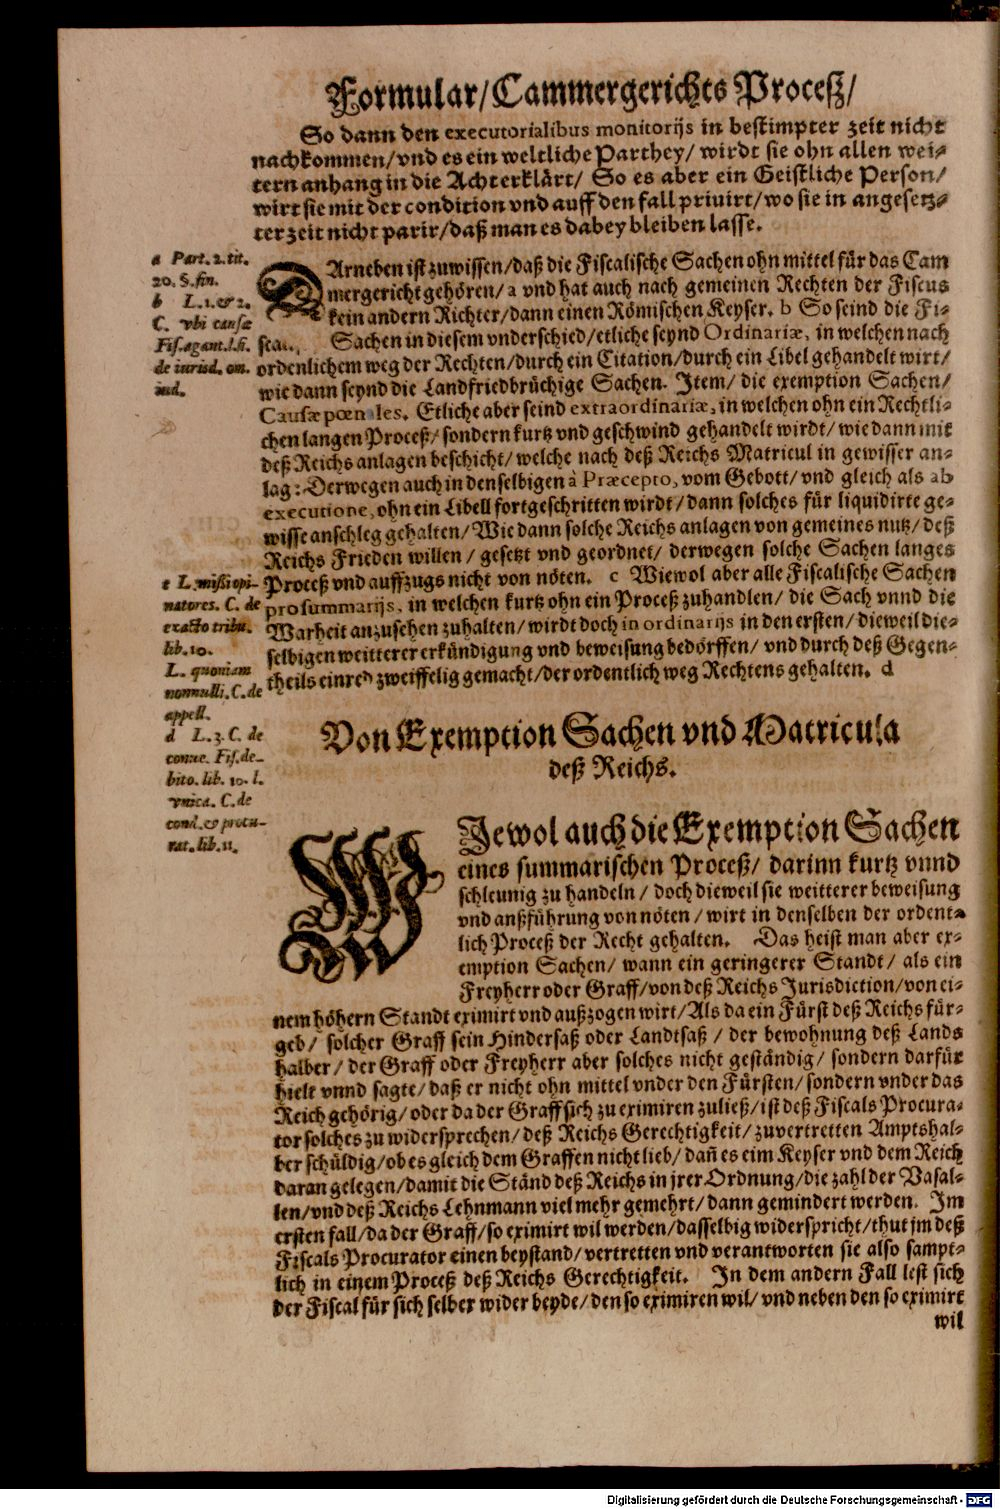 Formular/Cammergerichts Proceß/
So dann den executorialibus monitorijs in bestimpter zeit nicht
nachkommen/vnd es ein weltliche Parthey/ wirdt sie ohn allen wei-
tern anhang in die Acht erklärt/ So es aber ein Geistliche Person/
wirt sie mit der condition vnd auff den fall priuirt/wo sie in angesetz-
ter zeit nicht parir/daß man es dabey bleiben lasse.
a Part. 2. tit.
20. §. fin.
b L. 1. & 2.
C. vbi causæ
Fis. agant. l. fi.
de iurisd. om.
iud.
DArneben ist zuwissen/daß die Fiscalische Sachen ohn mittel für das Cam
mergericht gehören/ a vnd hat auch nach gemeinen Rechten der Fiscus
kein andern Richter/dann einen Römischen Keyser. b So seind die Fi-
scal. Sachen in diesem vnderschied/etliche seynd Ordinariæ, in welchen nach
ordenlichem weg der Rechten/durch ein Citation/durch ein Libel gehandelt wirt/
wie dann seynd die Landfriedbrüchige Sachen. Item/ die exemption Sachen/
Causæ pœnales. Etliche aber seind extraordinariæ, in welchen ohn ein Rechtli-
chen langen Proceß/sondern kurtz vnd geschwind gehandelt wirdt/wie dann mit
deß Reichs anlagen beschicht/welche nach deß Reichs Matricul in gewisser an-
lag: Derwegen auch in denselbigen à Præcepto, vom Gebott/vnd gleich als ab
executione, ohn ein Libell fortgeschritten wirdt/dann solches für liquidirte ge-
wisse anschleg gehalten/Wie dann solche Reichs anlagen von gemeines nutz/deß
Reichs Frieden willen/ gesetzt vnd geordnet/ derwegen solche Sachen langes
Proceß vnd auffzugs nicht von nöten. c Wiewol aber alle Fiscalische Sachen
pro summarijs, in welchen kurtz ohn ein Proceß zuhandlen/ die Sach vnnd die
Warheit anzusehen zuhalten/wirdt doch in ordinarijs in den ersten/dieweil die-
selbigen weitterer erkündigung vnd beweisung bedörffen/ vnd durch deß Gegen-
theils einred zweiffelig gemacht/der ordentlich weg Rechtens gehalten. d
c L. missi opi-
natores. C. de
exacto tribu.
lib. 10.
L. quoniam
nonnulli. C. de
appell.
d L. 3. C. de
conue. Fis. de-
bito. lib. 10. l.
vnica. C. de
cond. & procu-
rat. lib. 11.
Von Exemption Sachen vnd Matricula
deß Reichs.
WIewol auch die Exemption Sachen
eines summarischen Proceß/ darinn kurtz vnnd
schleunig zu handeln/ doch dieweil sie weitterer beweisung
vnd außführung von nöten/ wirt in denselben der ordent-
lich Proceß der Recht gehalten. Das heist man aber ex-
emption Sachen/ wann ein geringerer Standt/ als ein
Freyherr oder Graff/von deß Reichs Jurisdiction/von ei-
nem höhern Standt eximirt vnd außzogen wirt/Als da ein Fürst deß Reichs für-
geb/ solcher Graff sein Hindersaß oder Landtsaß/ der bewohnung deß Lands
halber/ der Graff oder Freyherr aber solches nicht geständig/ sondern darfür
hielt vnnd sagte/daß er nicht ohn mittel vnder den Fürsten/sondern vnder das
Reich gehörig/oder da der Graff sich zu eximiren zuließ/ist deß Fiscals Procura-
tor solches zu widersprechen/deß Reichs Gerechtigkeit/zuvertretten Amptshal-
ber schüldig/ob es gleich dem Graffen nicht lieb/dañ es eim Keyser vnd dem Reich
daran gelegen/damit die Ständ deß Reichs in jrer Ordnung/die zahl der Vasal-
len/vnd deß Reichs Lehnmann viel mehr gemehrt/dann gemindert werden. Im
ersten fall/da der Graff/so eximirt wil werden/dasselbig widerspricht/thut jm deß
Fiscals Procurator einen beystand/vertretten vnd verantworten sie also sampt-
lich in einem Proceß deß Reichs Gerechtigkeit. In dem andern Fall lest sich
der Fiscal für sich selber wider beyde/den so eximiren wil/vnd neben den so eximirt
wil
Digitalisierung gefördert durch die Deutsche Forschungsgemeinschaft - DFG